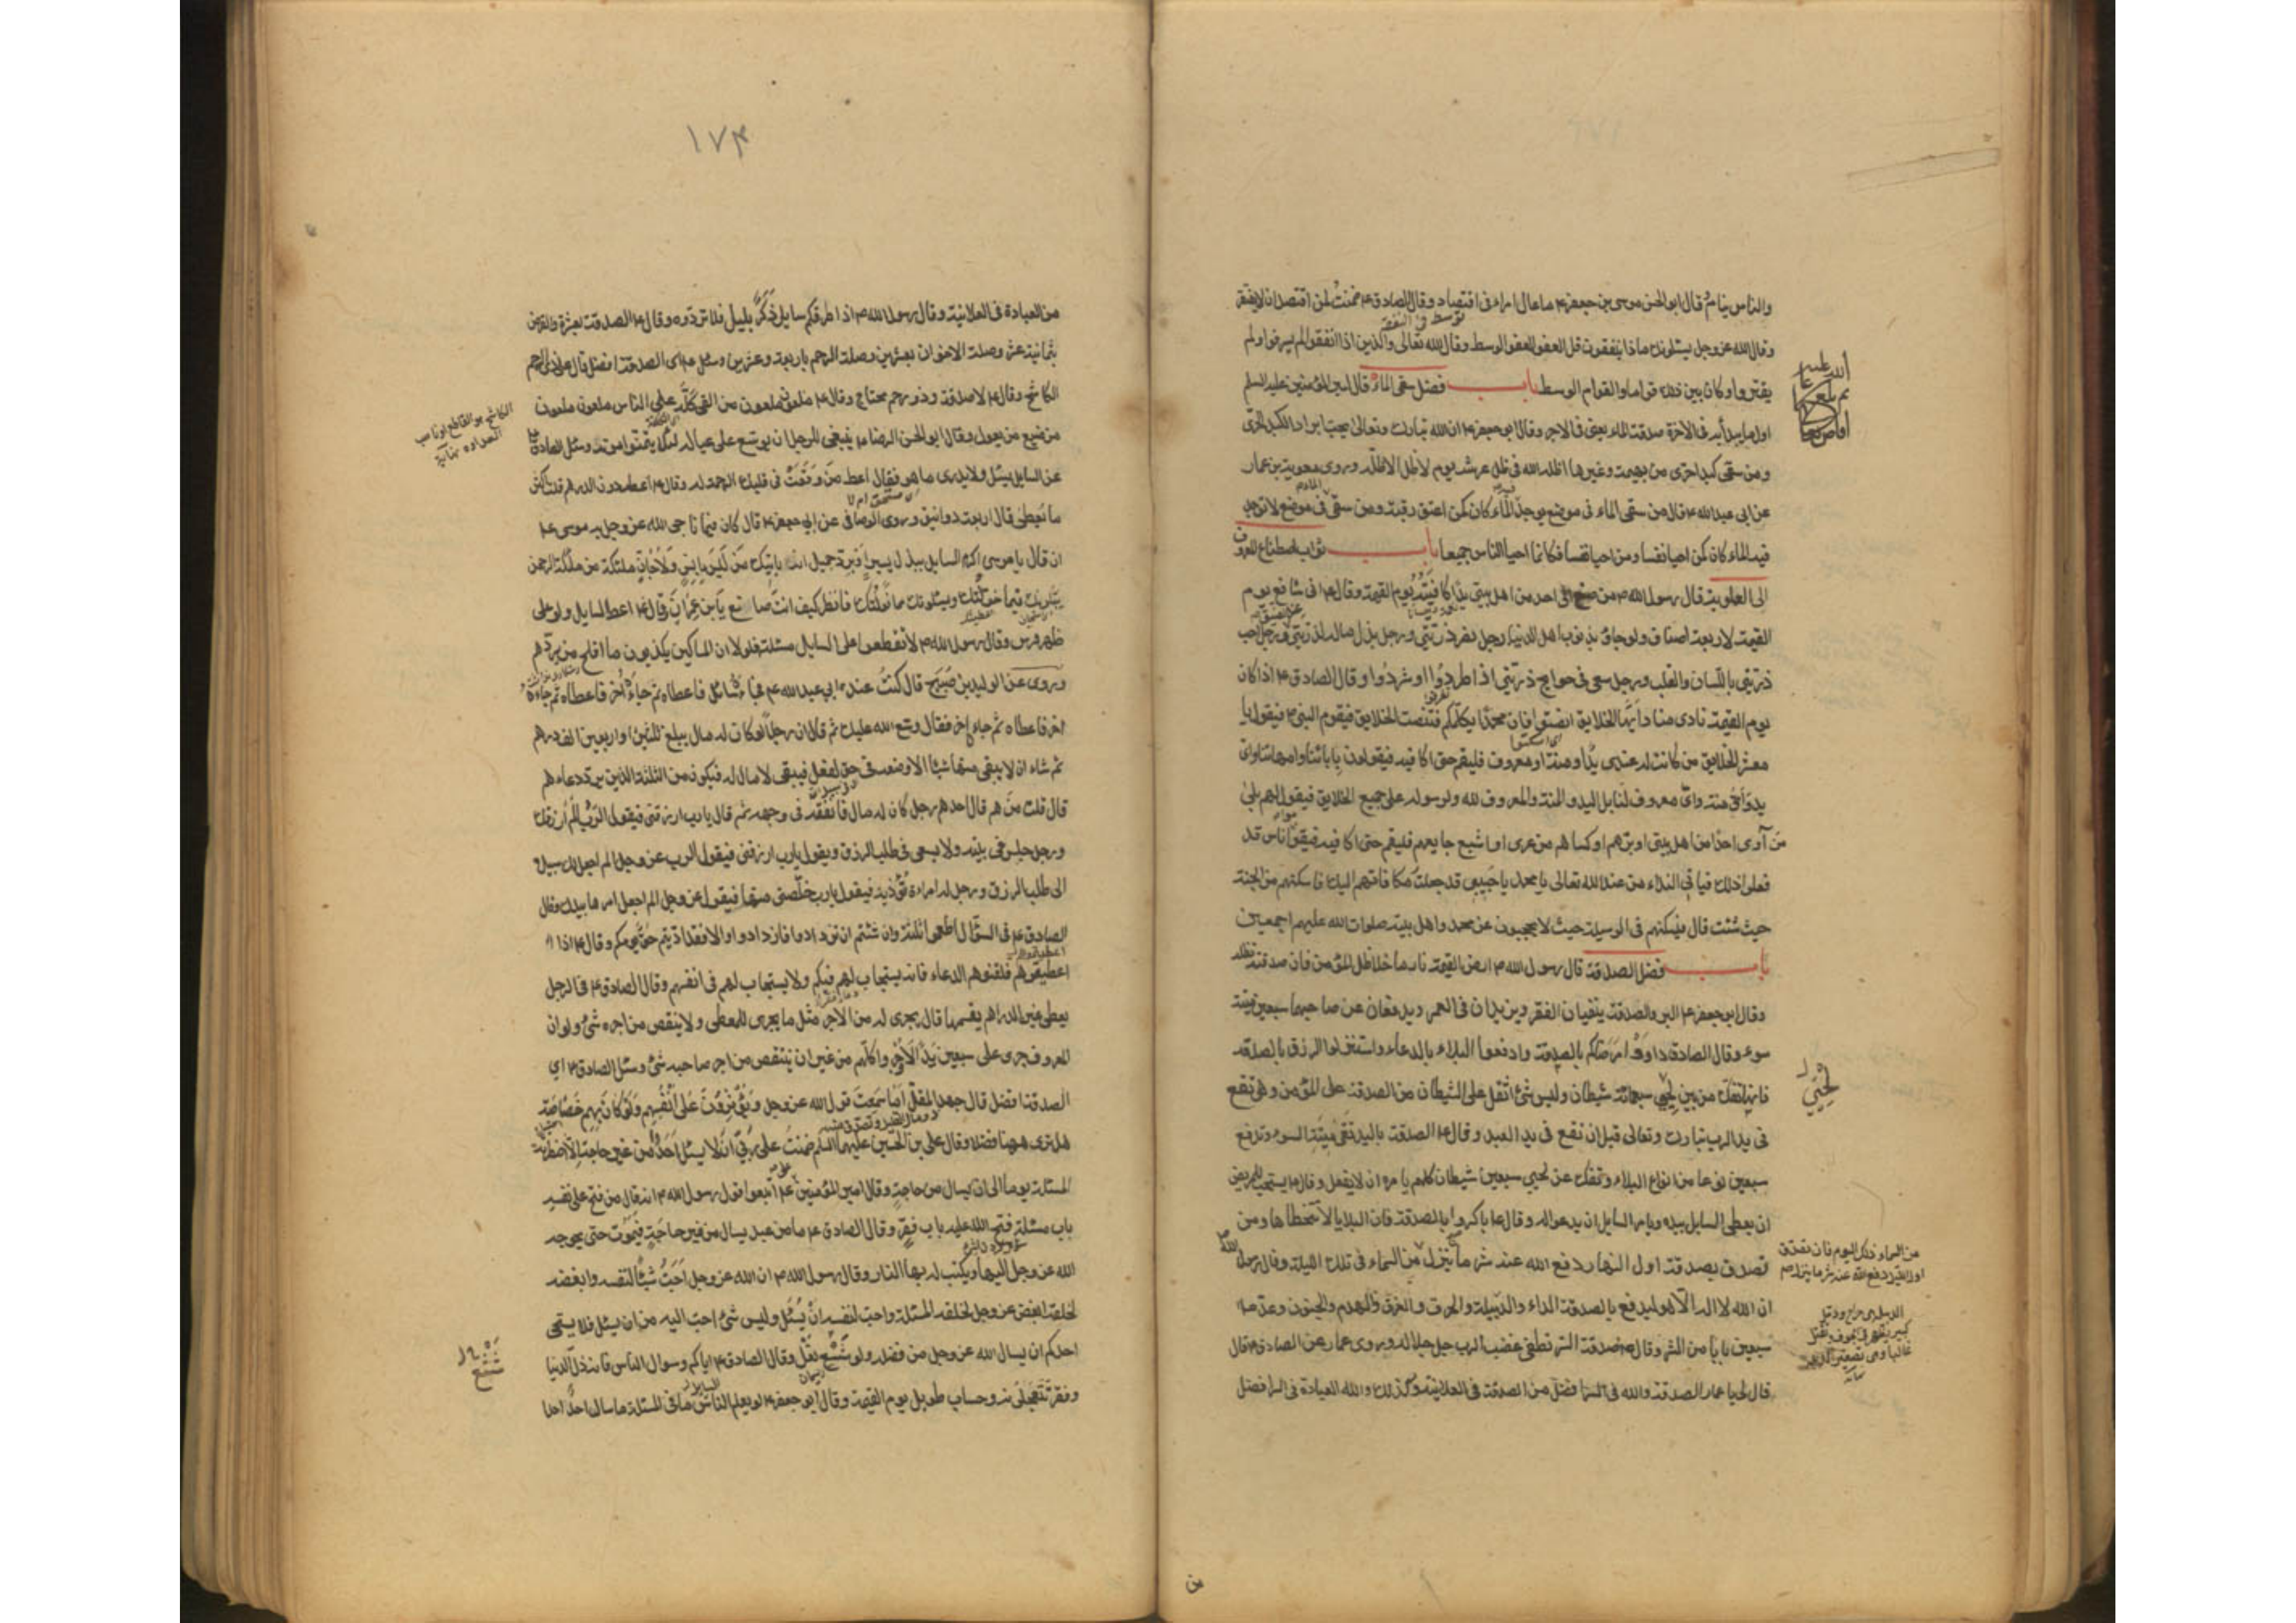 والناس نيام قال ابو الحسن موسى بن جعفر ع ما عال امرء فى اقتصاد وقال الصادق ع ضمنت لمن اقتصد ان لا يفتقر
وقال الله عز وجل يسئلونك ماذا ينفقون قل العفو العفو الوسط وقال الله تعالى والذين اذا انفقوا لم يسرفوا ولم
يقتروا وكان بين ذلك قواما والقوام الوسط باب فضل سقى الماء قال امير المؤمنين عليه السلم
اول ما يبدأ به فى الآخرة صدقة الماء يعنى فى الاجر وقال ابو جعفر ع ان الله تبارك وتعالى يحب ابراد الكبد الحرى
ومن سقى كبدا حرى من بهيمة وغيرها اظله الله فى ظل عرشه يوم لا ظل الا ظله وروى معوية بن عمار
عن ابى عبد الله ع قال من سقى الماء فى موضع يوجد فيه الماء كان كمن اعتق رقبة ومن سقى الماء فى موضع لا يوجد
فيه الماء كان كمن احيا نفسا ومن احيا نفسا فكانما احيا الناس جميعا باب ثواب اصطناع المعروف
الى العلوية قال رسول الله ص من صنع الى احد من اهل بيتى يدا كافيته يوم القيمة وقال ع انى شافع يوم
القيمة لاربعة اصناف ولو جاؤا بذنوب اهل الدنيا رجل نصر ذريتى ورجل بذل ماله لذريتى عند الضيق ورجل احب
ذريتى باللسان والقلب ورجل سعى فى حوايج ذريتى اذا طردوا او شردوا وقال الصادق ع اذا كان
يوم القيمة نادى مناد ايها الخلايق انصتوا فان محمدا يكلمكم فتنصت الخلايق فيقوم النبى ص فيقول يا
معشر الخلايق من كانت له عندى يد او منة او معروف فليقم حتى اكافيه فيقولون بابائنا وامهاتنا واى
يد واى منة واى معروف لنا بل اليد والمنة والمعروف لله ولرسوله على جميع الخلايق فيقول لهم بلى
من آوى احدا من اهل بيتى او برهم او كساهم من عرى او اشبع جايعهم فليقم حتى اكافيه فيقوم اناس قد
فعلوا ذلك فياتى النداء من عند الله تعالى يا محمد يا حبيبى قد جعلت مكافاتهم اليك فاسكنهم من الجنة
حيث شئت قال فيسكنهم فى الوسيلة حيث لا يحجبون عن محمد واهل بيته صلوات الله عليهم اجمعين
باب فضل الصدقة قال رسول الله ص ارض القيمة نار ما خلا ظل المؤمن فان صدقته تظله
وقال ابو جعفر ع البر والصدقة ينفيان الفقر ويزيدان فى العمر ويدفعان عن صاحبهما سبعين ميتة
سوء وقال الصادق ع داووا مرضاكم بالصدقة وادفعوا البلاء بالدعاء واستنزلوا الرزق بالصدقة
فانها تفك من بين لحيى سبعمائة شيطان وليس شئ اثقل على الشيطان من الصدقة على المؤمن وهى تقع
فى يد الرب تبارك وتعالى قبل ان تقع فى يد العبد وقال ع الصدقة باليد تقى ميتة السوء وتدفع
سبعين نوعا من انواع البلاء وتفك عن لحيى سبعين شيطان كلهم يامره ان لا يفعل وقال ع يستحب للمريض
ان يعطى السايل بيده ويامر السايل ان يدعو له وقال ع باكروا بالصدقة فان البلايا لا تتخطاها ومن
تصدق بصدقة اول النهار دفع الله عنه شر ما ينزل من السماء فى تلك الليلة وقال رسول الله ص
ان الله لا اله الا هو ليدفع بالصدقة الداء والدبيلة والحرق والغرق والهدم والجنون وعد ص
سبعين بابا من الشر وقال ع صدقة السر تطفئ غضب الرب جل جلاله وروى عمار عن الصادق ع قال
قال لى يا عمار الصدقة والله فى السر افضل من الصدقة فى العلانية وكذلك والله العبادة فى السر افضل
لحيى
من السماء ذلك اليوم فان تصدق
اول الليل دفع الله عنه شر ما ينزل
١٧٣
من العبادة فى العلانية وقال رسول الله ص اذا طرقكم سايل ذكر بليل فلا تردوه وقال ع الصدقة بعشرة والقرض
بثمانية عشر وصلة الاخوان بعشرين وصلة الرحم باربعة وعشرين وسئل ع اى الصدقة افضل قال على ذى الرحم
الكاشح وقال ع لا صدقة وذو رحم محتاج وقال ع ملعون ملعون من القى كله على الناس ملعون ملعون
من ضيع من يعول وقال ابو الحسن الرضا ع ينبغى للرجل ان يوسع على عياله لئلا يتمنوا موته وسئل الصادق ع
عن السايل يسئل ولا يدرى ما هو فقال اعط من وقعت فى قلبك الرحمة له وقال ع اعط دون الدرهم قلت اكثر
ما يعطى قال اربعة دوانيق وروى الوصافى عن ابى جعفر ع قال كان فيما ناجى الله عز وجل به موسى ع
ان قال يا موسى اكرم السايل ببذل يسير او برد جميل انه ياتيك من ليس بانس ولا جان ملئكة من ملئكة الرحمن
يبلونك فيما خولتك ويسئلونك مما نولتك فانظر كيف انت صانع يا بن عمران وقال ع اعط السايل ولو على
ظهر فرس وقال رسول الله ص لا تقطعوا على السايل مسئلته فلولا ان المساكين يكذبون ما افلح من يردهم
وروى عن الوليد بن صبيح قال كنت عند ابى عبد الله ع فجاءه سائل فاعطاه ثم جاءه آخر فاعطاه ثم جاءه
آخر فاعطاه ثم جاء آخر فقال وسع الله عليك ثم قال ان رجلا لو كان له مال يبلغ ثلثين او اربعين الف درهم
ثم شاء ان لا يبقى منها شيئا الا وضعه فى حق لفعل فيبقى لا مال له فيكون من الثلثة الذين يرد دعاءهم
قال قلت من هم قال احدهم رجل كان له مال فانفقه فى وجهه ثم قال يا رب ارزقنى فيقول الرب الم ارزقك
ورجل جلس فى بيته ولا يسعى فى طلب الرزق ويقول يا رب ارزقنى فيقول الرب عز وجل الم اجعل لك سبيلا
الى طلب الرزق ورجل له امراءة تؤذيه فيقول يا رب خلصنى منها فيقول عز وجل الم اجعل امرها بيدك وقال
الصادق ع فى السؤال اطعموا ثلثة وان شئتم ان تزدادوا فازدادوا والا فقد اديتم حق يومكم وقال ع اذا
اعطيتموهم فلقنوهم الدعاء فانه يستجاب لهم فيكم ولا يستجاب لهم فى انفسهم وقال الصادق ع فى الرجل
يعطى غيره الدراهم يقسمها قال يجرى له من الاجر مثل ما يجرى للمعطى ولا ينقص من اجره شئ ولو ان
المعروف جرى على سبعين يدا لأوجروا كلهم من غير ان ينتقص من اجر صاحبه شئ وسئل الصادق ع اى
الصدقة افضل قال جهد المقل اما سمعت قول الله عز وجل ويؤثرون على انفسهم ولو كان بهم خصاصة
هل ترى ههنا فضلا وقال على بن الحسين عليهما السلم ضمنت على ربى ان لا يسئل احد من غير حاجة الا اضطرته
المسئلة يوما الى ان يسال من حاجة وقال امير المؤمنين ع اتبعوا قول رسول الله ص انه قال من فتح على نفسه
باب مسئلة فتح الله عليه باب فقر وقال الصادق ع ما من عبد يسال من غير حاجة فيموت حتى يحوجه
الله عز وجل اليها ويكتب له بها النار وقال رسول الله ص ان الله عز وجل احب شيئا لنفسه وابغضه
لخلقه ابغض عز وجل لخلقه المسئلة واحب لنفسه ان يسئل وليس شئ احب اليه من ان يسئل فلا يستحى
احدكم ان يسال الله عز وجل من فضله ولو شسع نعل وقال الصادق ع اياكم وسوال الناس فانه ذل الدنيا
وفقر تتعجلونه وحساب طويل يوم القيمة وقال ابو جعفر ع لو يعلم السايل ما فى المسئلة ما سال احد احدا
شسع